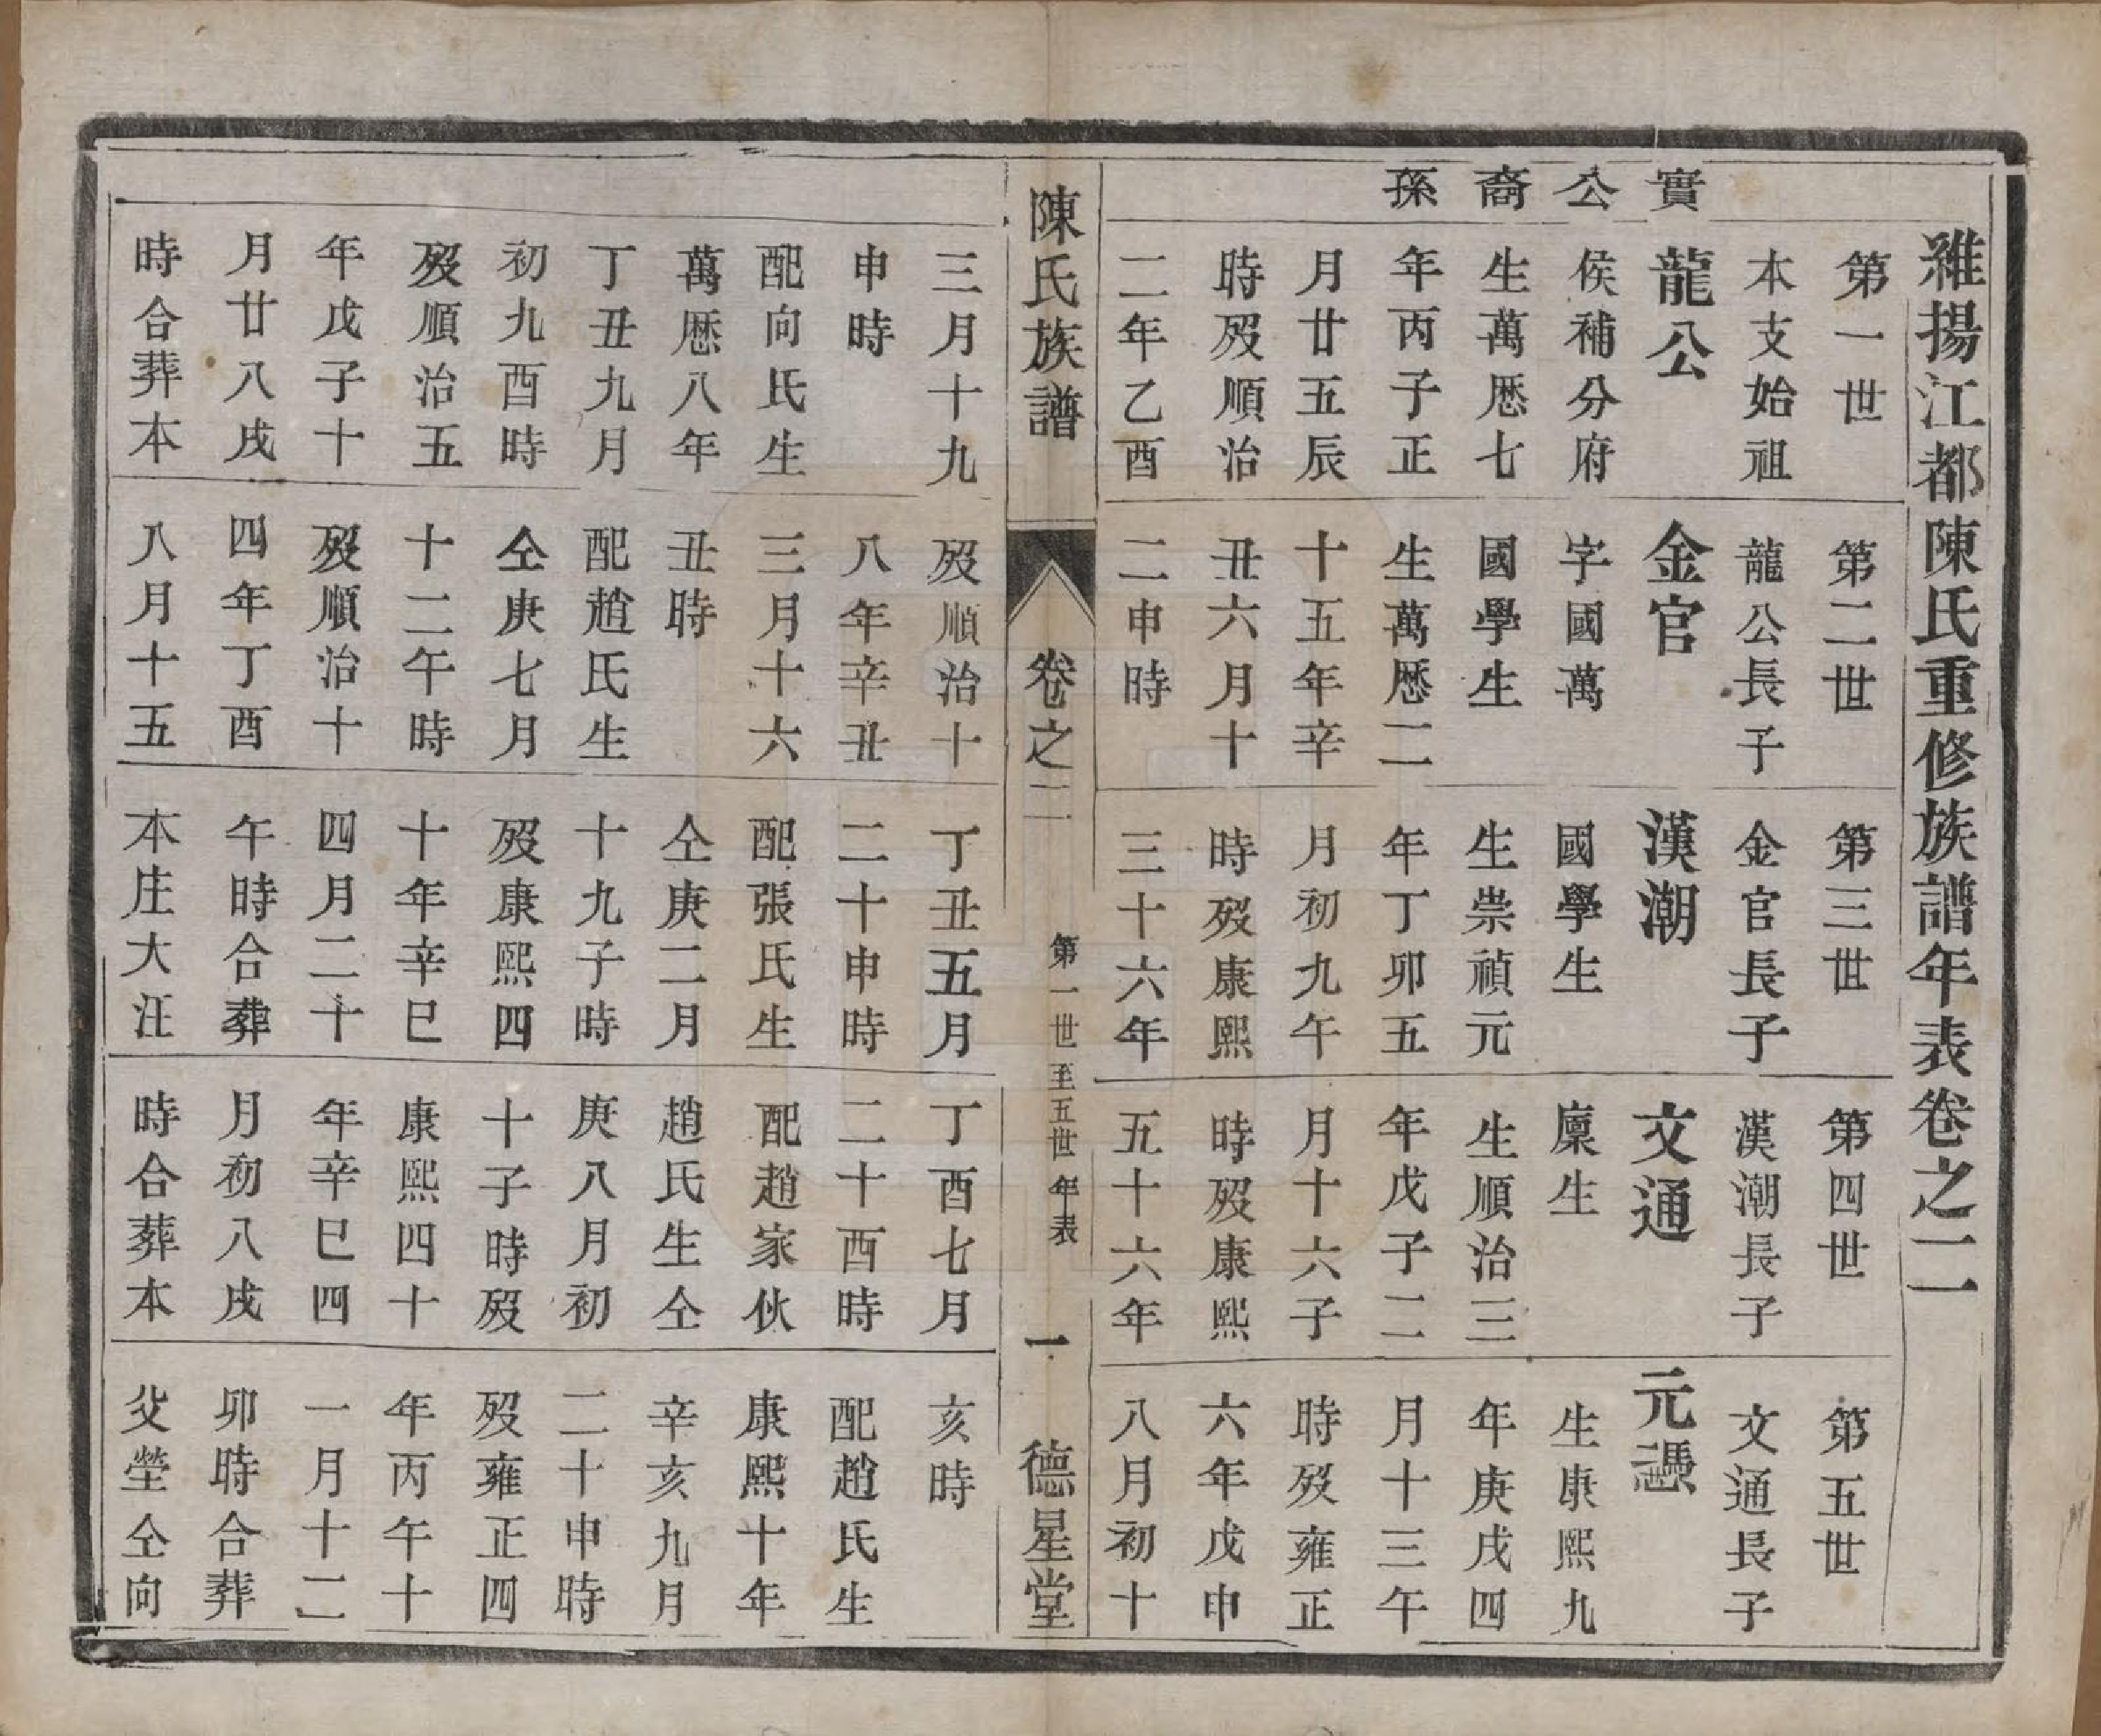 雒揚江都陳氏重修族譜年表卷之二
實公裔孫
第一世
本支始祖
龍公
侯補分府
生萬厯七
年丙子正
月廿五辰
時歿順治
二年乙酉
第二世
龍公長子
金官
字國萬
國學生
生萬厯二
十五年辛
丑六月十
二申時
第三世
金官長子
漢潮
國學生
生祟禎元
年丁卯五
月初九午
時歿康熙
三十六年
第四世
漢潮長子
文通
廩生
生順治三
年戊子二
月十六子
時歿康熙
五十六年
第五世
文通長子
元憑
生康熙九
年庚戌四
月十三午
時歿雍正
六年戊申
八月初十
陳氏族譜
卷之二
第一世至五世年表
一
德星堂
三月十九
申時
配向氏生
萬厯八年
丁丑九月
初九酉時
歿順治五
年戊子十
月廿八戌
時合葬本
歿順治十
八年辛丑
三月十六
丑時
配趙氏生
仝庚七月
十二午時
歿順治十
四年丁酉
八月十五
丁丑五月
二十申時
配張氏生
仝庚二月
十九子時
歿康熙四
十年辛巳
四月二十
午時合葬
本庄大汪
丁酉七月
二十酉時
配趙家伙
趙氏生仝
庚八月初
十子時歿
康熙四十
年辛巳四
月初八戌
時合葬本
亥時
配趙氏生
康熙十年
辛亥九月
二十申時
歿雍正四
年丙午十
一月十二
卯時合葬
父塋仝向